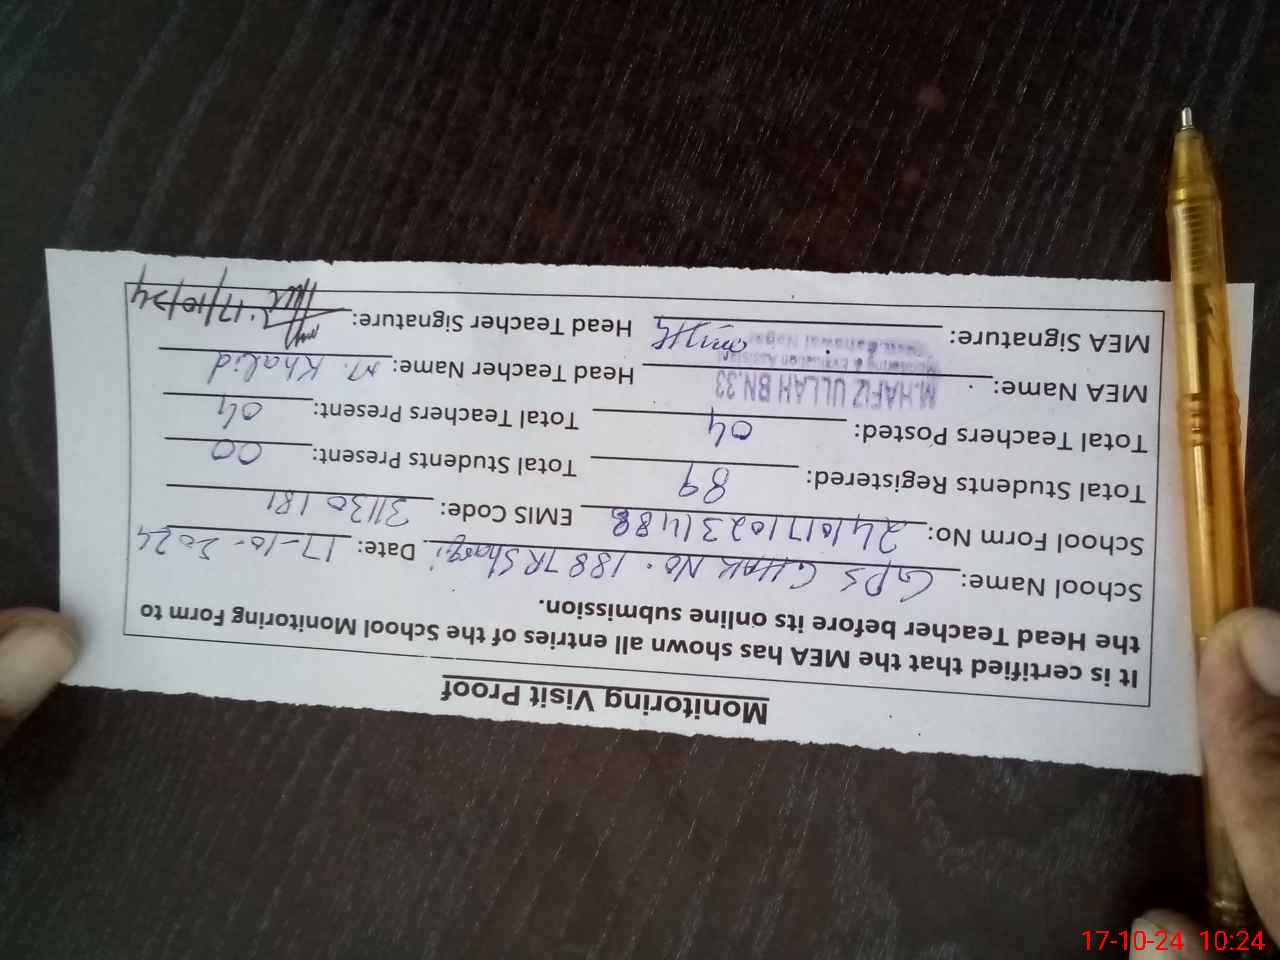 Monitoring Visit Proof
It is certified that the MEA has shown all entries of the School Monitoring Form to
the Head Teacher before its online submission.
School Name: GPS CHAK NO. 188 7R Sharqi Date: 17-10-2024
School Form No: EMIS Code: 31130181
Total Students Registered: 89 Total Students Present: 00
Total Teachers Posted: 04 Total Teachers Present: 04
MEA Name: M.HAFIZ ULLAH BN.33 Head Teacher Name: M. Khalid
Monitoring & Evaluation Assistant
MEA Signature: Head Teacher Signature: 17/10/24
17-10-24 10:24